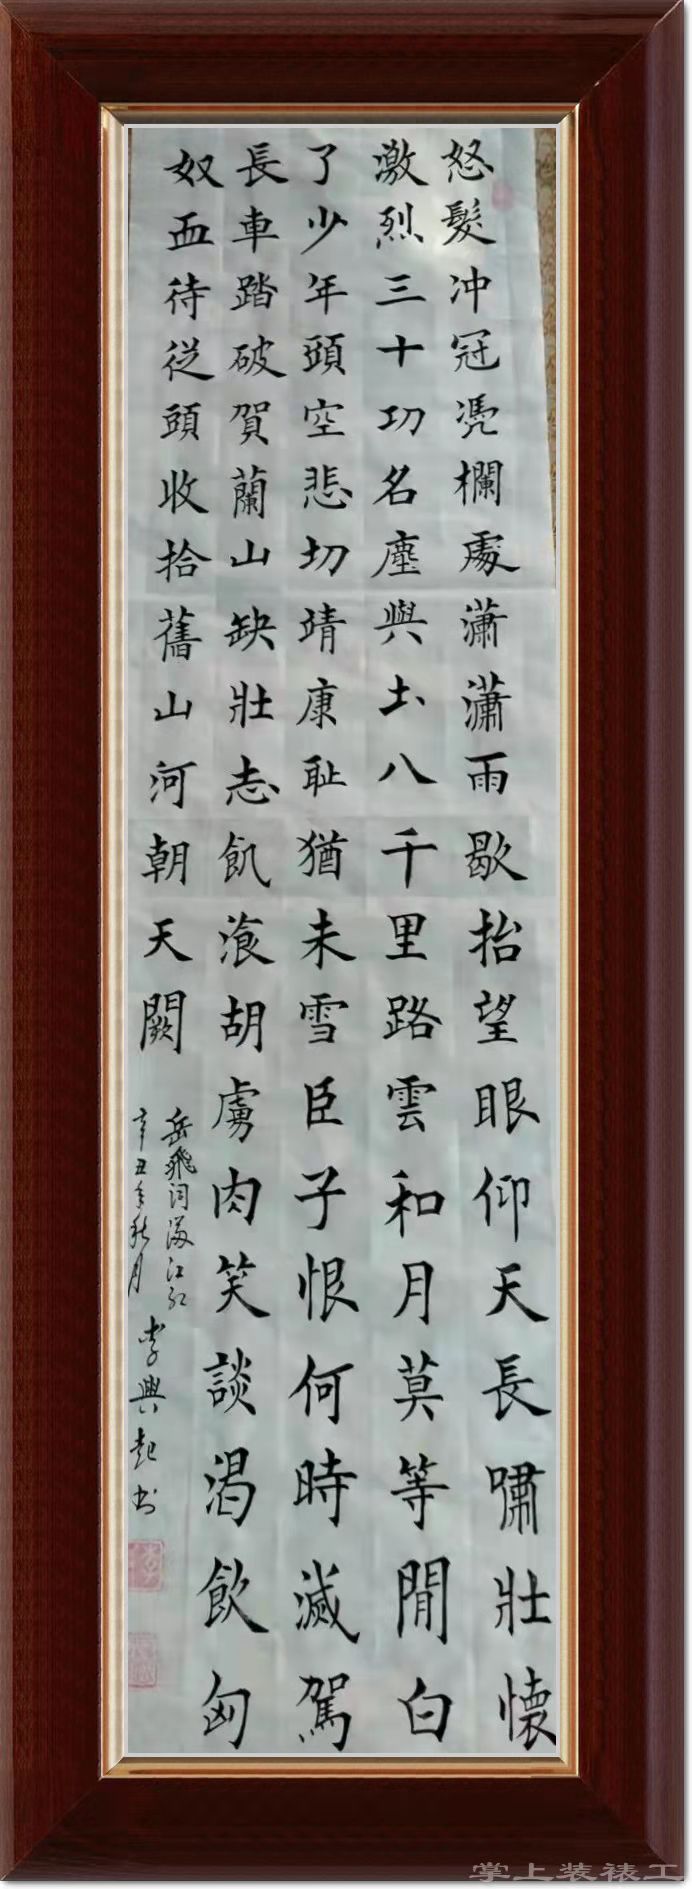 怒髮冲冠凴欄處瀟瀟雨歇抬望眼仰天長嘯壯懷
激烈三十功名塵與圡八千里路雲和月莫等閒白
了少年頭空悲切靖康耻猶未雪臣子恨何時滅駕
長車踏破賀蘭山缺壯志飢湌胡虜肉笑談渴飲匈
奴血待從頭收拾舊山河朝天闕
岳飛词滿江红
辛丑年秋月 李興起书
掌上装裱工